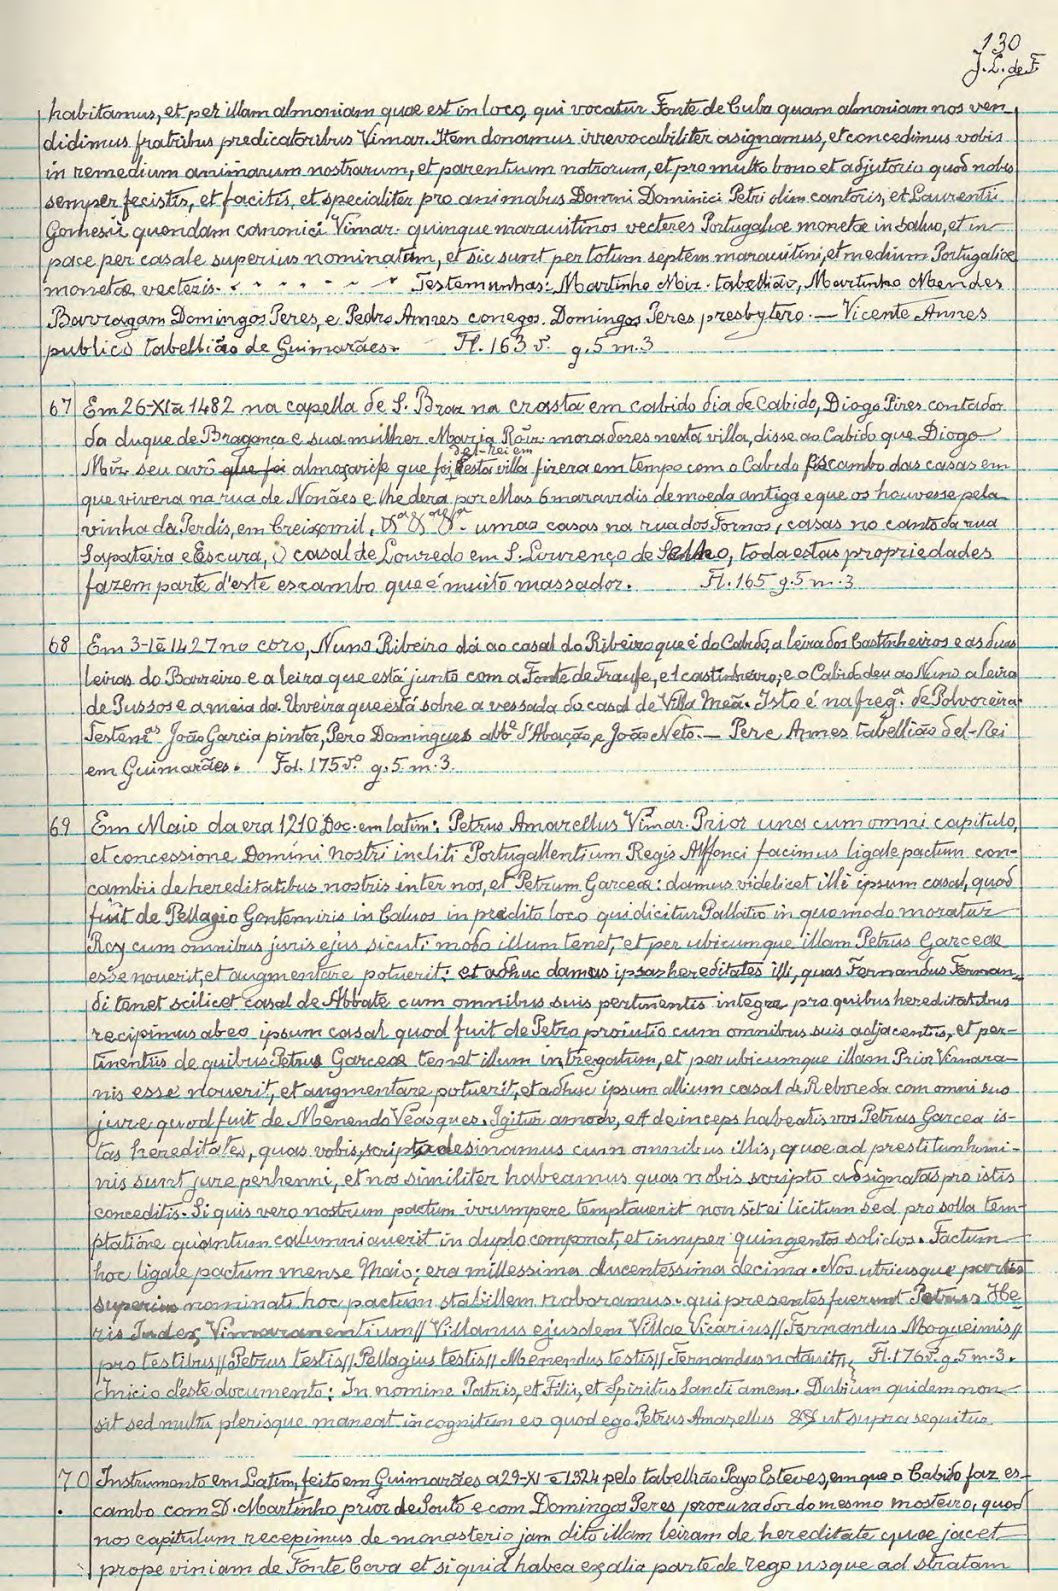 130
J. L. de F
habitamus, et per illam almoniam quae est in loco, qui vocatur Fonte de Cuba quam almoniam nos ven-
didimus fratribus predicatoribus Vimar. Item donamus irrevocabiliter asignamus, et concedimus vobis
in remedium animarum nostrarum, et parentium notrorum, et pro multo bono et adjutorio quod nobis
semper fecistis, et facitis, et specialiter pro animabus Domni Dominici Petri olim cantoris, et Laurentii
Gomesii quondam canonici Vimar. quinque marauitinos vecteres Portugaliae monetae in saluo, et in
pace per casale superius nominatum, et sic sunt per totum septem marauitini, et medium Portugaliae
monetae vecteris. - - - - - - - Testemunhas: Martinho Miz. tabellião, Martinho Mendes
Barragam Domingos Peres, e Pedro Annes conegos. Domingos Peres presbytero. — Vicente Annes
publico tabellião de Guimarães. Fl. 163 vº. g. 5 m. 3
67 Em 26-XI-ª 1482 na capella de S. Braz na crasta em cabido dia de Cabido, Diogo Pires contador
da duque de Bragança e sua mulher Maria Roiz. moradores nesta villa, disse ao Cabido que Diogo
del-Rei em
Miz. seu avô que foi almoxarife que foi desta villa fizera em tempo com o Cabido escambo das casas em
que vivera na rua de Nonães e lhe dera por ellas 6 maravidis de moeda antiga e que os houvesse pela
vinha da Perdis, em Creixomil, umas casas na rua dos Fornos, casas no canto da rua
Sapateira e Escura, O casal de Louredo em S. Lourenço de Selho, toda estas propriedades
fazem parte d'este escambo que é muito massador. Fl. 165 g. 5 m. 3
68 Em 3-I-ª 1427 no coro, Nuno Ribeiro dá ao casal do Ribeiro que é do Cabido, a leira dos Castinheiros e as duas
leiras do Barreiro e a leira que está junto com a Fonte de Traufe, e 1 castinheiro; e o Cabido deu ao Nuno a leira
de Pussos e a meia da Uveira que está sobre a vessada do casal de Villa Meã. Isto é na freg.ª de Polvoreira.
Testem.as João Garcia pintor, Pero Domingues abb.e d'Abação, e João Neto. — Pere Annes tabellião del-Rei
em Guimarães. Fol. 175 vº. g. 5. m. 3.
69 Em Maio da era 1210 Doc. em latim: Petrus Amarellus Vimar. Prior una cum omni capitulo,
et concessione Domini nostri incliti Portugallentium Regis Alffonci facimus ligale pactum con-
cambii de hereditatibus nostris inter nos, et Petrum Garceae: damus videlicet illi ipsum casal, quod
fuit de Pellagio Gontemiris in Caluos in predito loco qui dicitur Pallatio in quo modo moratur
Roy cum omnibus juris ejus sicuti modo illum tenet, et per ubicumque illam Petrus Garceae
esse nouerit, et augmentare potuerit: et adhuc damus ipsas hereditates illi, quas Fernandus Fernan-
di tenet scilicet casal de Abbate cum omnibus suis pertinentis integre pro quibus hereditatibus
recipimus ab eo ipsum casal quod fuit de Petro proiutio cum omnibus suis adjacentis, et per-
tinentiis de quibus Petrus Garceae tenet illum intregatum, et per ubicumque illam Prior Vimara-
nis esse nouerit, et augmentare potuerit, et adhuc ipsum allium casal de Reboreda com omni suo
jure quod fuit de Menendo Veasques. Igitur amodo, et de inceps habeatis vos Petrus Garcea is-
tas hereditates, quas vobis scripto desinamus cum omnibus illis, quae ad prestitum homi-
nis sunt jure perhenni, et nos similiter habeamus quas nobis scripto assignatas pro istis
conceditis. Si quis vero nostrum pactum irrumpere temptauerit non sit ei licitum sed pro solla tem-
ptatione quantum calumniauerit in duplo componat, et insuper quingentos solidos. Factum
hoc ligale pactum mense Maio; era millessima ducentessima decima. Nos utriusque partis
superius nominati hoc pactum stabillem roboramus. qui presentes fuerunt Petruss He-
ris Judex Vimaranentium// Villanus ejusdem Villae Vicarius// Fernandus Mogueimis//
pro testibus// Petrus testis// Pellagius testis// Menendus testis// Fernandus notauit// Fl. 176 vº. g. 5 m. 3.
Inicio d'este documento: In nomine Patris, et Filii, et Spiritus Sancti amem. Dubium quidem non
sit sed multu plerisque maneat incognitum eo quod ego Petrus Amarellus && ut supra sequitur.
70 Instrumento em Latim, feito em Guimarães a 29-XI-ª 1324 pelo tabellião Payo Esteves, em que o Cabido faz es-
cambo com D. Martinho prior de Souto e com Domingos Peres procurador do mesmo mosteiro, quod
nos capitulum recepimus de monasterio jam dito illam leiram de hereditate quae jacet
prope viniam de Fonte Cova et si quid habea ex alia parte de rego usque ad stratam